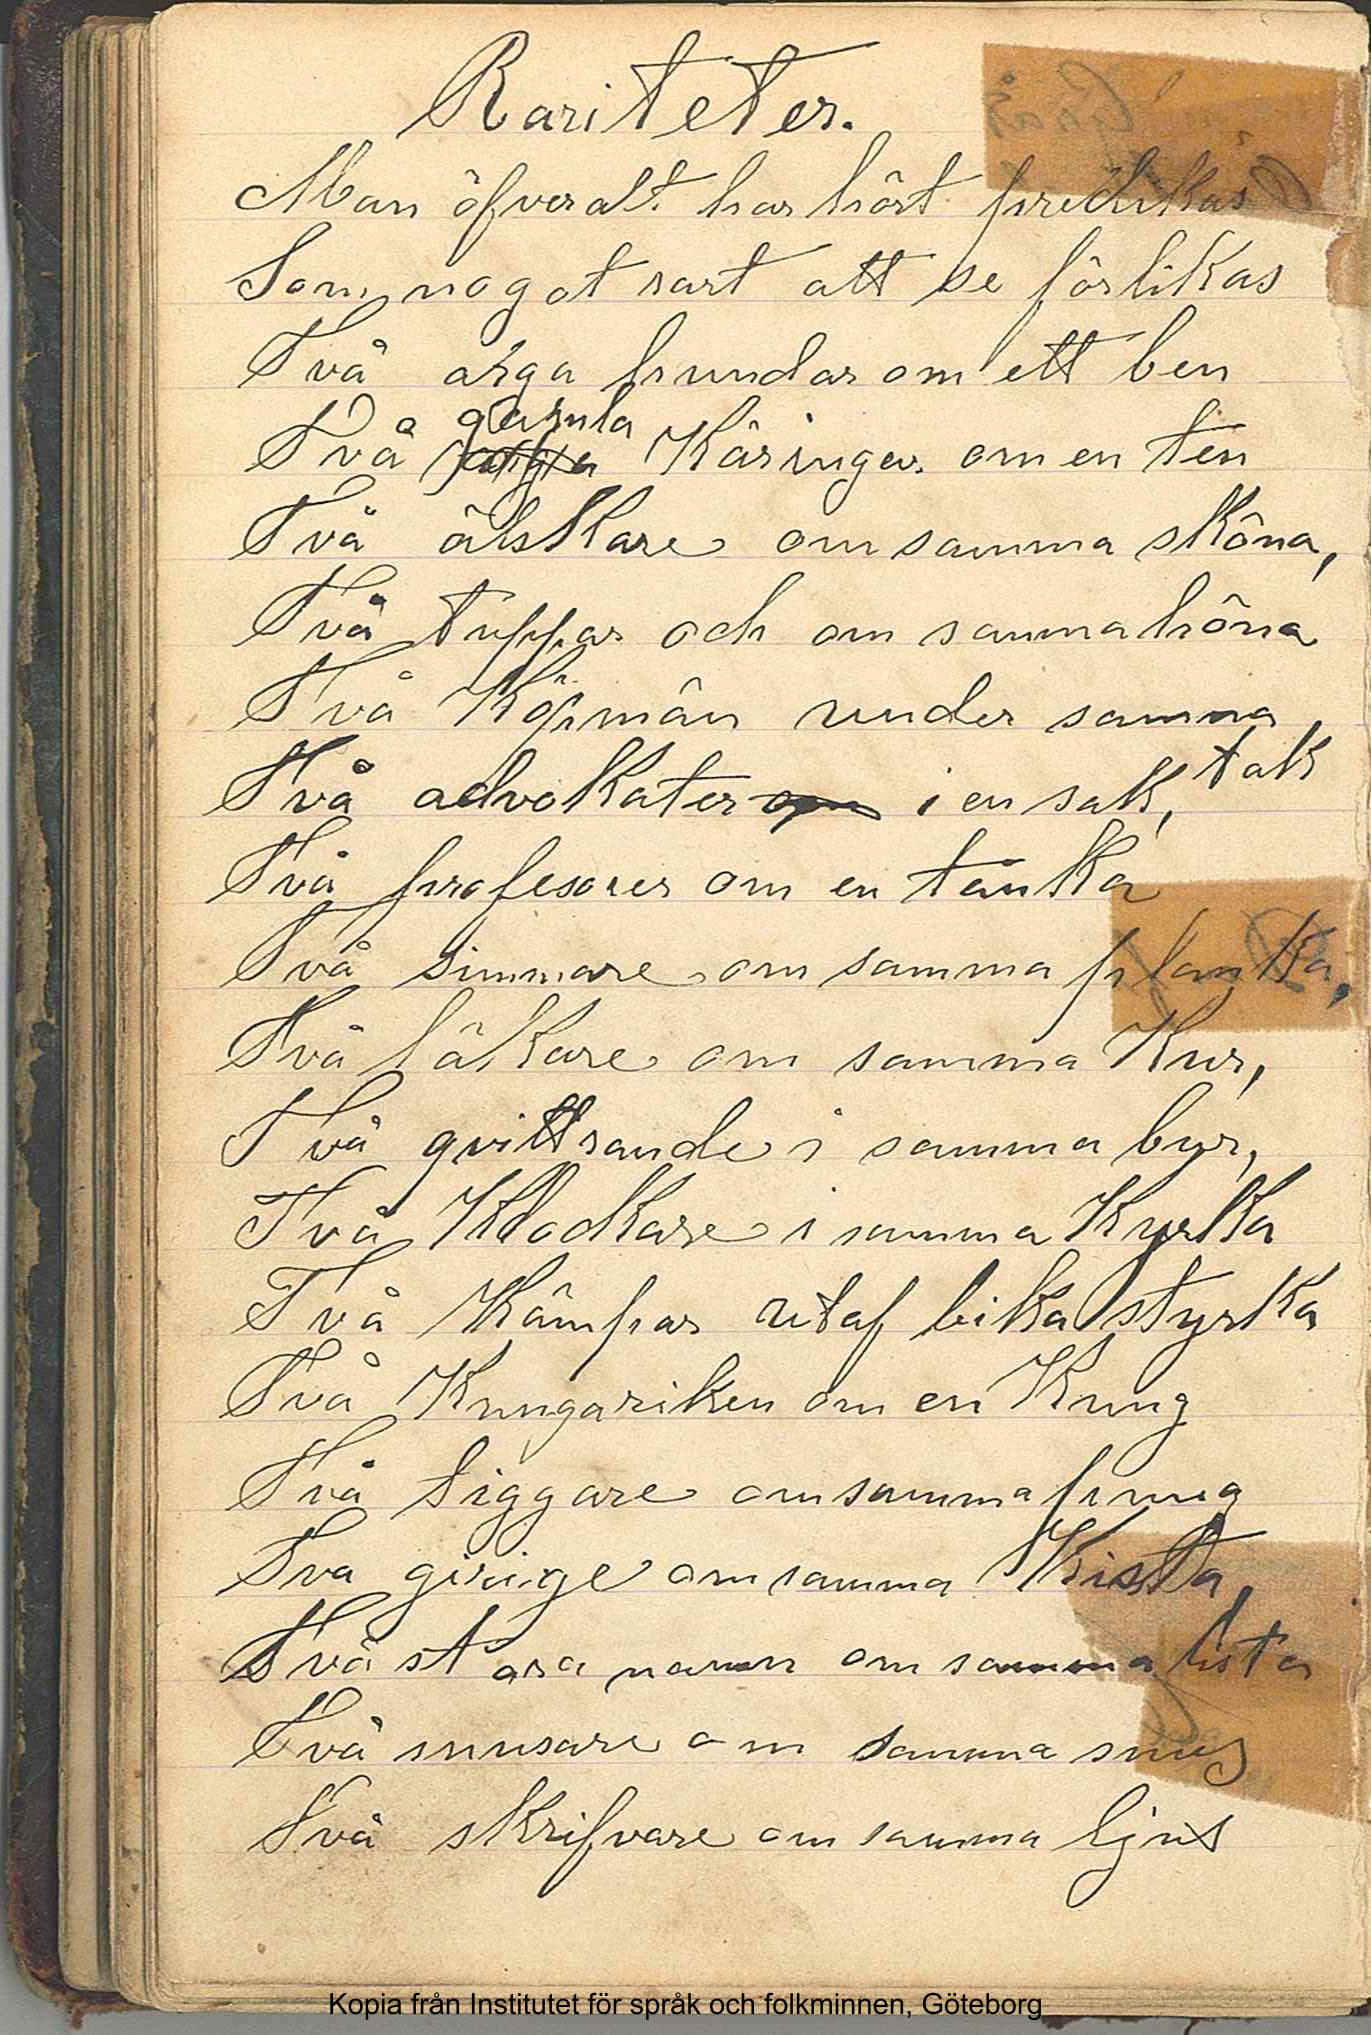 Rariteter.
Man öfveralt har hört predikas
Som nogot rart att se förlikas
Två arga hundar om ett ben
Två gamla Käringar om en ten
Två älskare om samma sköna,
Två tuppar och om samma höna
Två Köpmän under samma tak
Två advokater i en sak,
Två profesorer om en tanka
Två simmare om samma planka,
Två läkare om samma Kur,
Två qvittrande i samma bur,
Två Klockare i samma Kyrka
Två Kämpar utaf lika styrka
Två Kungariken om en Kung
Två tiggare om samma pung
Två girige om samma Kista,
Två stora namn om samma lista
Två snusare om samma snus
Två skrifvare om samma ljus
Kopia från Institutet för språk och folkminnen, Göteborg